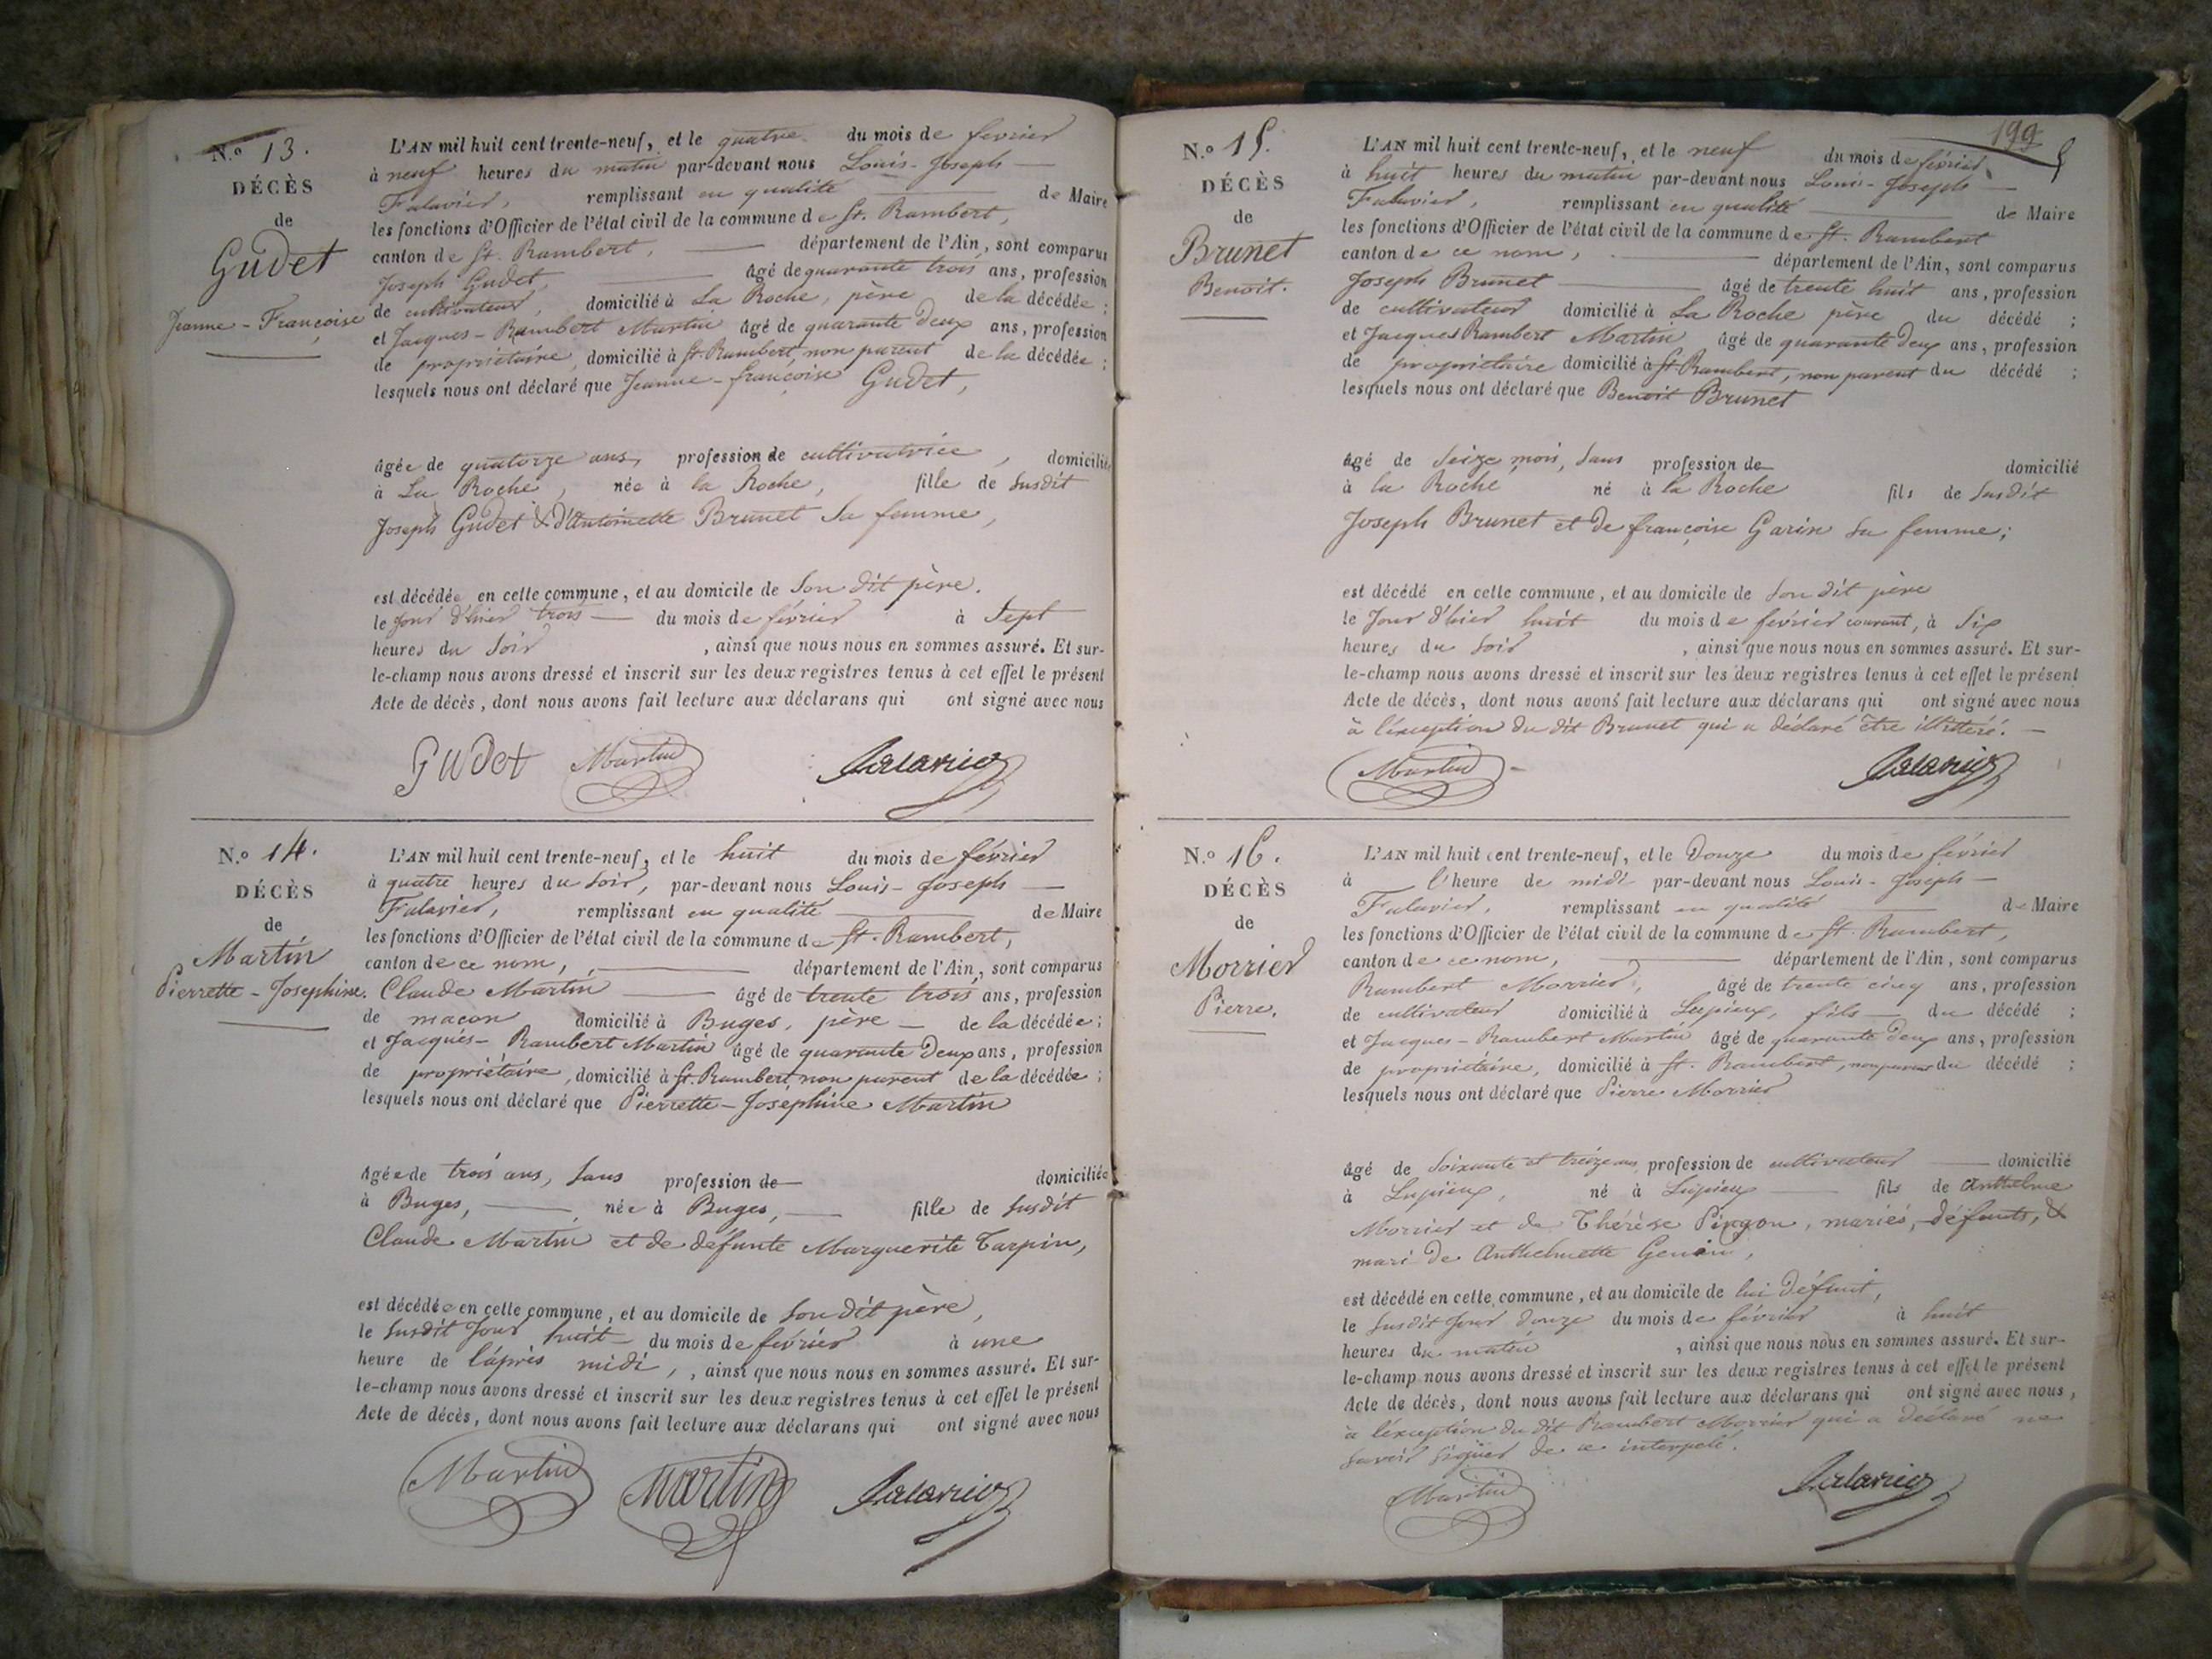 N.º 13.
DÉCÈS
de
Gudet
Jeanne-Françoise
L'AN mil huit cent trente-neuf, et le quatre du mois de fevrier
à neuf heures du matin par-devant nous Louis-Joseph
Falavier, remplissant en qualité de Maire
les fonctions d'Officier de l'état civil de la commune de St. Rambert,
canton de St. Rambert, département de l'Ain, sont comparus
Joseph Gudet, âgé de quarante trois ans, profession
de cultivateur, domicilié à La Roche, père de la décédée;
et Jacques-Rambert Martin âgé de quarante deux ans, profession
de propriétaire, domicilié à St. Rambert, non parent de la décédée;
lesquels nous ont déclaré que Jeanne-françoise Gudet,
âgée de quatorze ans, profession de cultivatrice, domiciliée
à La Roche, née à la Roche, fille de susdit
Joseph Gudet & d'Antoinette Brunet sa femme,
est décédée en cette commune, et au domicile de son dit père.
le jour d'hier trois du mois de février à sept
heures du soir, ainsi que nous nous en sommes assuré. Et sur-
le-champ nous avons dressé et inscrit sur les deux registres tenus à cet effet le présent
Acte de décès, dont nous avons fait lecture aux déclarans qui ont signé avec nous
Gudet Martin Falavier
N.º 14.
DÉCÈS
de
Martin
Pierrette-Josephine.
L'AN mil huit cent trente-neuf, et le huit du mois de février
à quatre heures du soir, par-devant nous Louis-Joseph
Falavier, remplissant en qualité de Maire
les fonctions d'Officier de l'état civil de la commune de St. Rambert,
canton de ce nom, département de l'Ain, sont comparus
Claude Martin âgé de trente trois ans, profession
de maçon domicilié à Buges, père de la décédée;
et Jacques-Rambert Martin âgé de quarante deux ans, profession
de propriétaire, domicilié à St. Rambert non parent de la décédée;
lesquels nous ont déclaré que Pierrette-Joséphine Martin
âgée de trois ans, sans profession de domiciliée
à Buges, née à Buges, fille de susdit
Claude Martin et de défunte Marguerite Tarpin,
est décédée en cette commune, et au domicile de son dit père,
le susdit jour huit du mois de février à une
heure de l'après midi, ainsi que nous nous en sommes assuré. Et sur-
le-champ nous avons dressé et inscrit sur les deux registres tenus à cet effet le présent
Acte de décès, dont nous avons fait lecture aux déclarans qui ont signé avec nous
Martin Martin Falavier
199
N.º 15.
DÉCÈS
de
Brunet
Benoit.
L'AN mil huit cent trente-neuf, et le neuf du mois de février
à huit heures du matin par-devant nous Louis-Joseph
Falavier, remplissant en qualité de Maire
les fonctions d'Officier de l'état civil de la commune de St. Rambert
canton de ce nom, département de l'Ain, sont comparus
Joseph Brunet âgé de trente huit ans, profession
de cultivateur domicilié à La Roche père du décédé;
et Jacques Rambert Martin âgé de quarante deux ans, profession
de propriétaire domicilié à St Rambert, non parent du décédé;
lesquels nous ont déclaré que Benoit Brunet
âgé de seize mois, sans profession de domicilié
à la Roche né à la Roche fils de susdit
Joseph Brunet et de françoise Garin sa femme;
est décédé en cette commune, et au domicile de son dit père
le jour d'hier huit du mois de février courant, à six
heures du soir, ainsi que nous nous en sommes assuré. Et sur-
le-champ nous avons dressé et inscrit sur les deux registres tenus à cet effet le présent
Acte de décès, dont nous avons fait lecture aux déclarans qui ont signé avec nous
à l'exception du dit Brunet qui a déclaré être illitéré.
Martin Falavier
N.º 16.
DÉCÈS
de
Morrier
Pierre.
L'AN mil huit cent trente-neuf, et le douze du mois de février
à l'heure de midi par-devant nous Louis-Joseph
Falavier, remplissant en qualité de Maire
les fonctions d'Officier de l'état civil de la commune de St. Rambert,
canton de ce nom, département de l'Ain, sont comparus
Rambert Morrier, âgé de trente cinq ans, profession
de cultivateur domicilié à Lupieux, fils du décédé;
et Jacques-Rambert Martin âgé de quarante deux ans, profession
de propriétaire, domicilié à St. Rambert, non parent du décédé;
lesquels nous ont déclaré que Pierre Morrier
âgé de soixante et treize ans profession de cultivateur domicilié
à Lupieux, né à Lupieux fils de Anthelme
Morrier et de Thérèse, mariés, défunts, &
mari de Anthelmette Genin,
est décédé en cette commune, et au domicile de lui défunt,
le susdit jour douze du mois de février à huit
heures du matin, ainsi que nous nous en sommes assuré. Et sur-
le-champ nous avons dressé et inscrit sur les deux registres tenus à cet effet le présent
Acte de décès, dont nous avons fait lecture aux déclarans qui ont signé avec nous,
à l'exception du dit Rambert Morrier qui a déclaré ne
savoir signer de ce interpelé.
Martin Falavier